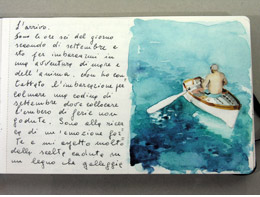 L'arrivo.
Sono le ore sei del giorno
secondo di settembre e
sto per imbarcarmi in
una avventura di mare e
dell'anima. Non ho con
tattato l'imbarcazione per
colmare una coding di
settembre dove collocare
l'embero di ferie non
godute. Sono alla ricer
ca di un'emozione for
te e mi aspetto molto
dalla scelta caduta su
un legno che galleggia